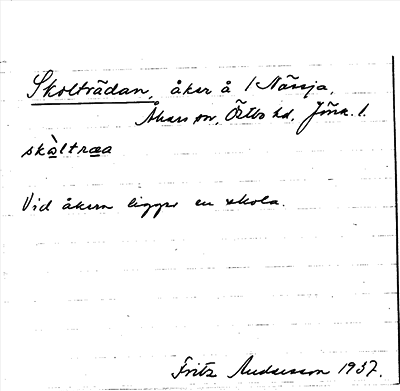 Skolträdan, åker å 1 Nässja,
Åkers sn, Östbo hd, Jönk. l.
skòltræa
Vid åkern ligger en skola.
Fritz Andersson 1937.